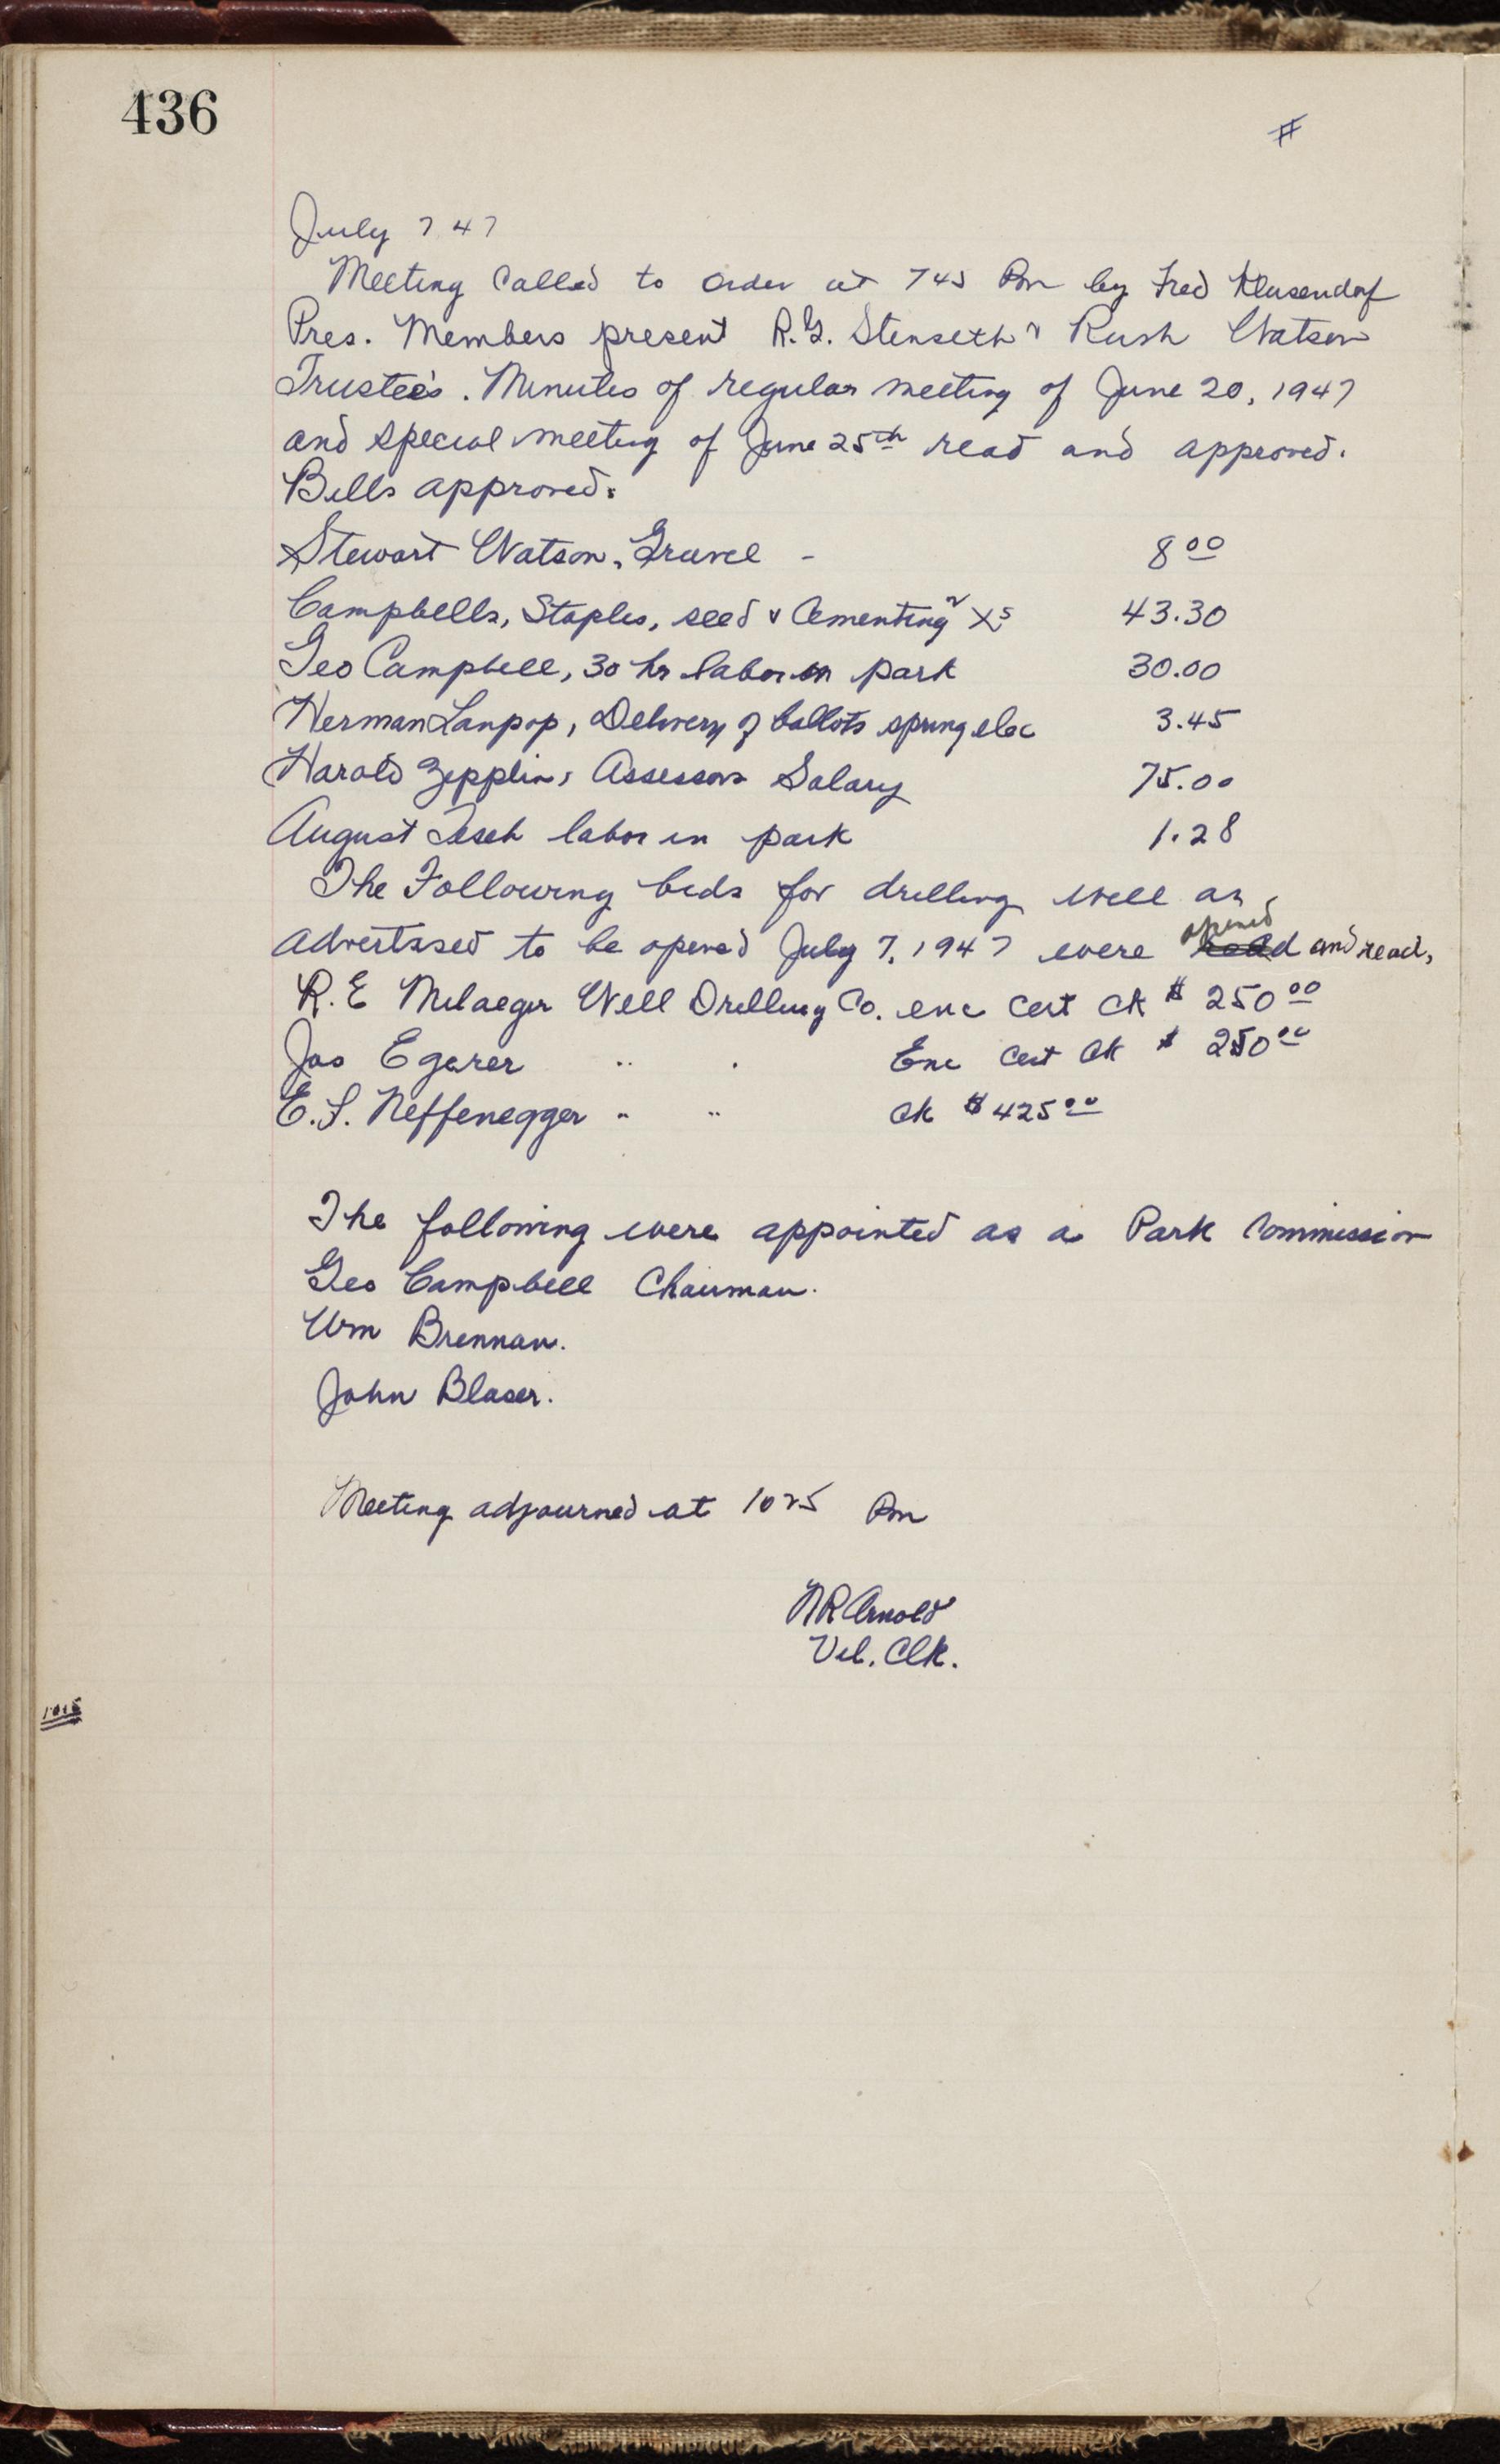 436
#
July 7 47
Meeting Called to order at 745 Pm by Fred Klusendorf
Pres. Members present R.G. Stenseth & Rush Watson
Trustee's. Minutes of regular meeting of June 20, 1947
and special meeting of June 25th read and approved.
Bills approved:
Stewart Watson, Gravel - 8 00
Campbells, Staples, seed & Cementing 43.30
Geo Campbell, 30 hr labor in park 30.00
Herman Lanpop, Delivery of ballots spring elec 3.45
Harold Zepplin, Assessors Salary 75.00
August Tesch labor in park 1.28
The Following bids for drilling well as
advertised to be opened July 7, 1947 were read opened and read,
R.E Milaeger Well Drilling Co. enc Cert Ck $ 250 00
Jas Egerer " " Enc Cert Ck $ 250 00
E.F. Neffenegger " " Ck $ 425 00
The following were appointed as a Park Commission
Geo Campbell Chairman.
Wm Brennan.
John Blaser.
Meeting adjourned at 1025 Pm
NR Arnold
Vil. Clk.